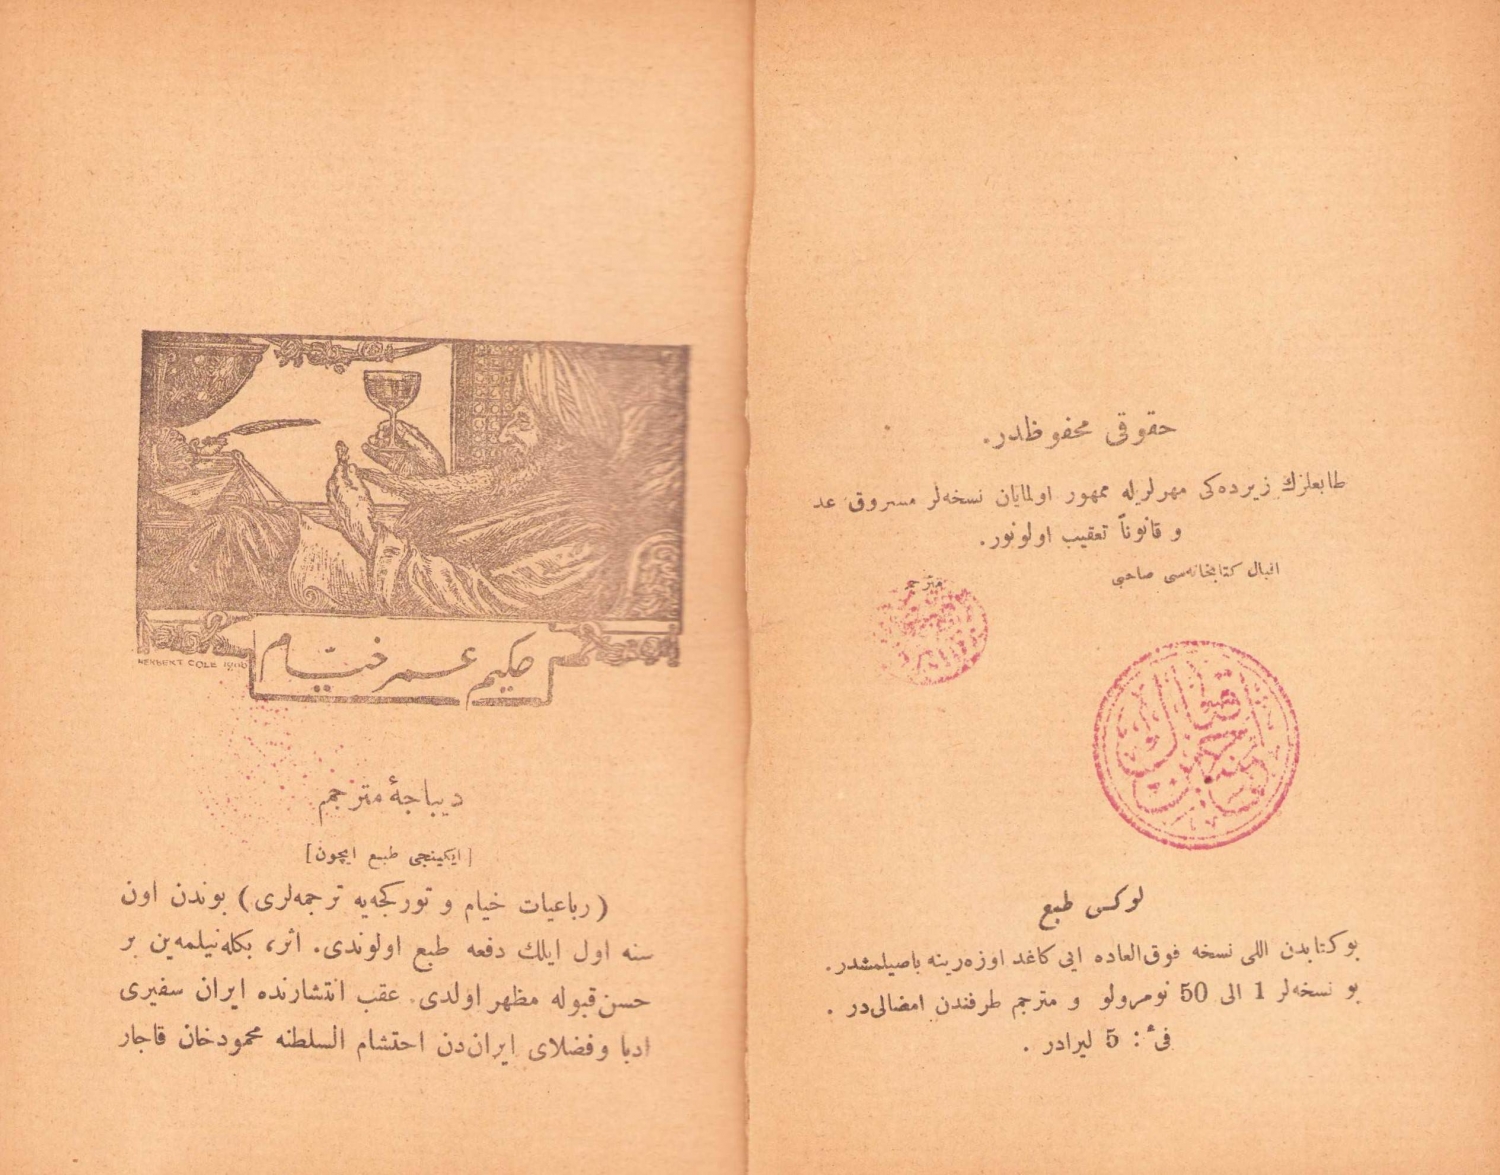 حقوقی محفوظدر.
طابعلرك زیرده‌کی مهرلریله ممهور اولمایان نسخه‌لر مسروق عد
و قانوناً تعقیب اولونور.
اقبال کتابخانه‌سی صاحبی
مترجم
لوکس طبع
بو کتابدن اللی نسخه فوق‌العاده ایی کاغد اوزه‌رینه باصیلمشدر.
بو نسخه‌لر 1 الی 50 نومرولو و مترجم طرفندن امضالی‌در .
فیٔ : 5 لیرادر .
HERBERT COLE
حکیم عمر خیّام
دیباجهٔ مترجم
[ایکینجی طبع ایچون]
(رباعیات خیام و تورکجه‌یه ترجمه‌لری) بوندن اون
سنه اول ایلك دفعه طبع اولوندی. اثر، بکله‌نیلمه‌ین بر
حسن‌قبوله مظهر اولدی. عقب انتشارنده ایران سفیری
ادبا وفضلای ایران‌دن احتشام السلطنه محمودخان قاجار